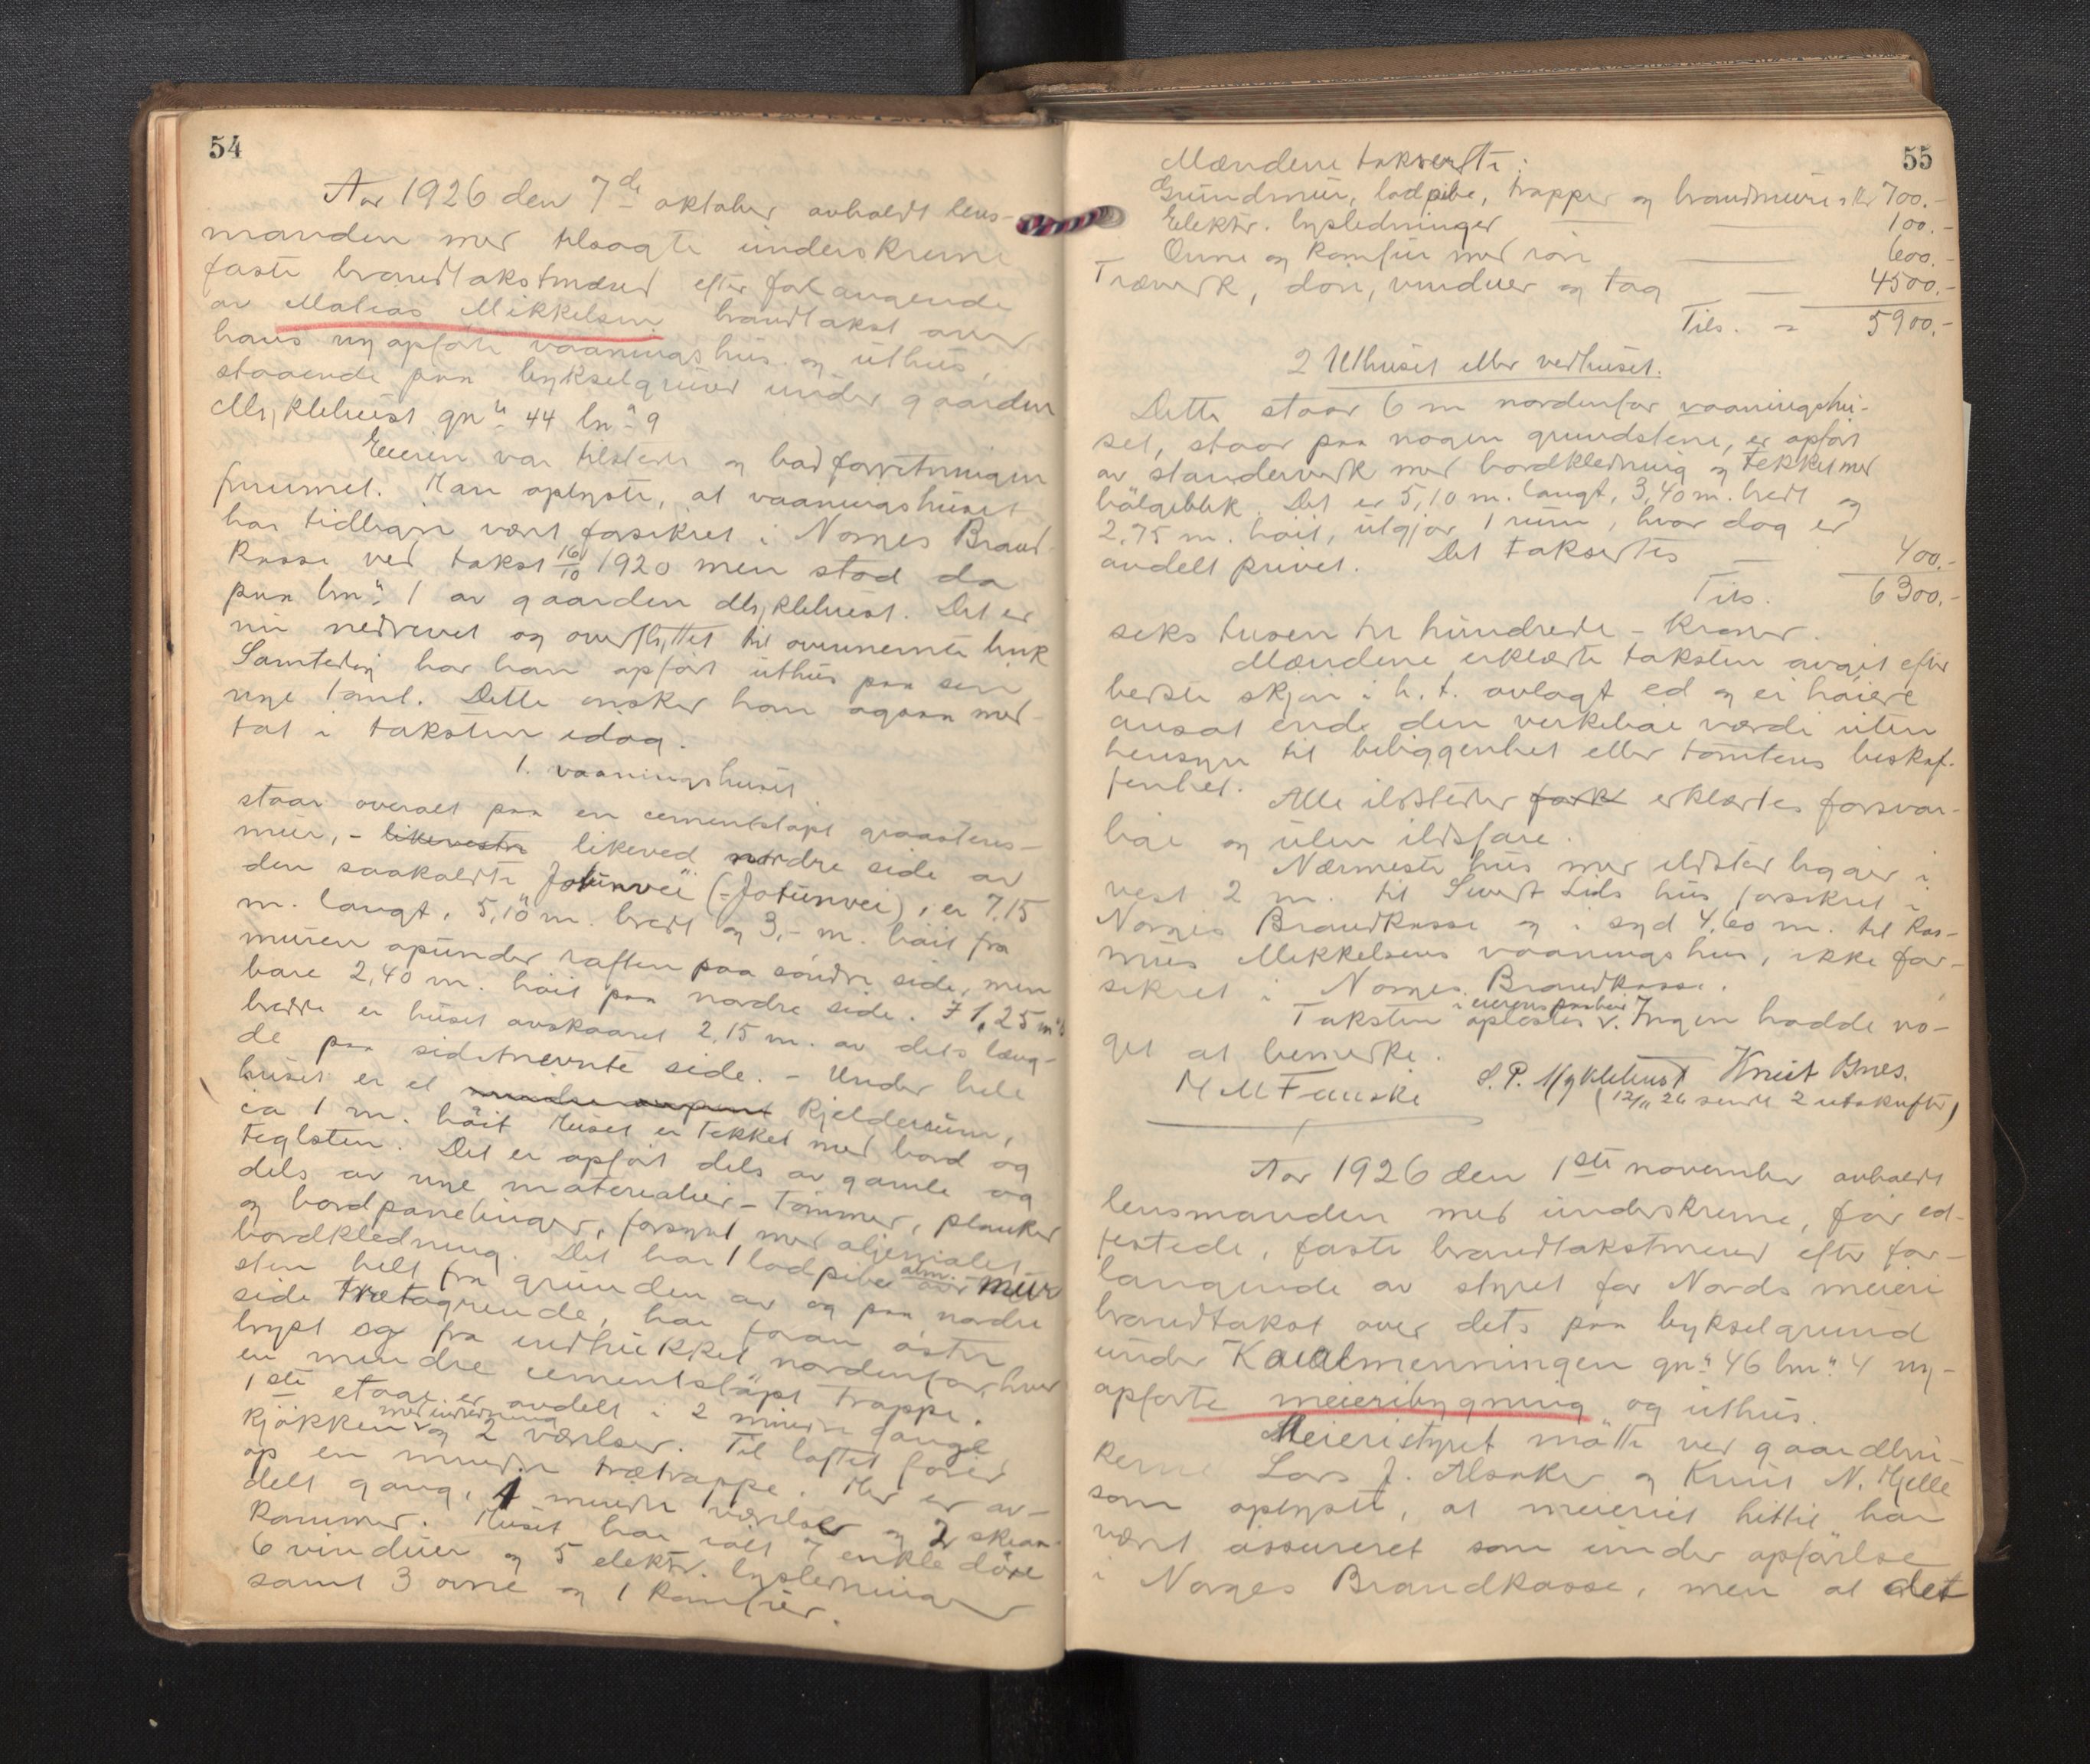 54
Aar 1926 den 7de oktober avholdt lens-
manden med tilsagte underskrevne
faste brandtakstmænd efter forlangende
av Matias Mikkelsen brandtakst over
hans nyopførte vaaningshus og uthus,
staaende paa bykselgrund under gaarden
Myklebust gn. 44 bn. 9
Eieren var tilstede og bad forretningen
fremmet. Han oplyste, at vaaningshuset
har tidligere vært forsikret i Norges Brand-
kasse ved takst 16/10 1920 men stod da
paa bn. 1 av gaarden Myklebust. Det er
nu nedrevet og overflyttet til ovennevnte bruk
Samtidig har han opført uthus paa sin
nye tomt. Dette ønsker han ogsaa med-
tat i taksten idag.
1. vaaningshuset
staar overalt paa en cementstøpt graastens-
mur, - likevestre likeved nordre side av
den saakaldte "Jotunvei" (=Jotunvei), er 7,15
m. langt, 5,10 m. bredt og 3,- m. høit fra
muren opunder raften paa søndre side, men
bare 2,40 m. høit paa nordre side. I 1,25 m's
bredde er huset avskaaret 2,15 m. av dets læng-
de paa sidstnevnte side. - Under hele
huset er et kjelderrum,
ca 1 m. høit Huset er tekket med bord og
teglsten. Det er opført dels av gamle og
dels av nye materialier - tømmer, planker
og bordpanelinger, forsynt med oljemalet
bordkledning. Det har 1 lodpibe av alm. mur
sten helt fra grunden av og paa nordre
side trætagrende, har foran østre
bryst og fra indhukket nordenfor, hver
en mindre cementstøpt trappe.
1ste etage er avdelt i 2 mindre gange
kjøkken med indredning og 2 værelser. Til loftet fører
op en mindre trætrappe. Her er av-
delt gang, 1 mindre værelse og 2 skraa-
kammer. Huset har ialt 7 enkle døre
6 vinduer og 5 elektr. lysledninger
samt 3 ovne og 1 komfur.
55
Mændene takserte:
Grundmur, lodpibe, trapper og brandmure kr 700.-
Elektr. lysledninger — — 100.-
Ovne og komfur med rør — 600.-
Træverk, døre, vinduer og tag — 4500.-
Tils. = 5900.-
2 Uthuset eller vedhuset.
Dette staar 6 m nordenfor vaaningshu-
set, staar paa nogen grundstene, er opført
av standerverk med bordkledning og tekket med
bølgeblik. Det er 5,10 m. langt, 3,40 m. bredt og
2,75 m. høit, utgjør 1 rum, hvor dog er
avdelt privet. Det taksertes — 400.-
Tils. 6300.-
seks tusen tre hundrede - kroner.
Mændene erklærte taksten avgit efter
bedste skjøn i h. t. avlagt ed og ei høiere
ansat end den virkelige værdi uten
hensyn til beliggenhet eller tomtens beskaf-
fenhet.
Alle ildsteder fork erklærtes forsvar-
lige og uten ildsfare.
Nærmeste hus med ildsted ligger i
vest 2 m. til Sivert Lids hus forsikret i
Norges Brandkasse og i syd 4,60 m. til Ras-
mus Mikkelsens vaaningshus, ikke for-
sikret i Norges Brandkasse.
Taksten oplæstes i eierens paahør. Ingen hadde no-
get at bemerke.
M M Fauske S. P. Myklebust Knut Bnes.
(12/11 26 sendt 2 utskrifter)
Aar 1926 den 1ste november avholdt
lensmanden med underskrevne, før ed-
festede, faste brandtakstmend efter for-
langende av styret for Nords meieri
brandtakst over dets paa bykselgrund
under Kaialmenningen gn. 46 bn. 4 ny-
opførte meieribygning og uthus.
Meieristyret møtte ved gaardbru-
kerne Lars J. Alsaker og Knut N. Hjelle
som oplyste, at meieriet hittil har
vært assureret som under opførelse
i Norges Brandkasse, men at det